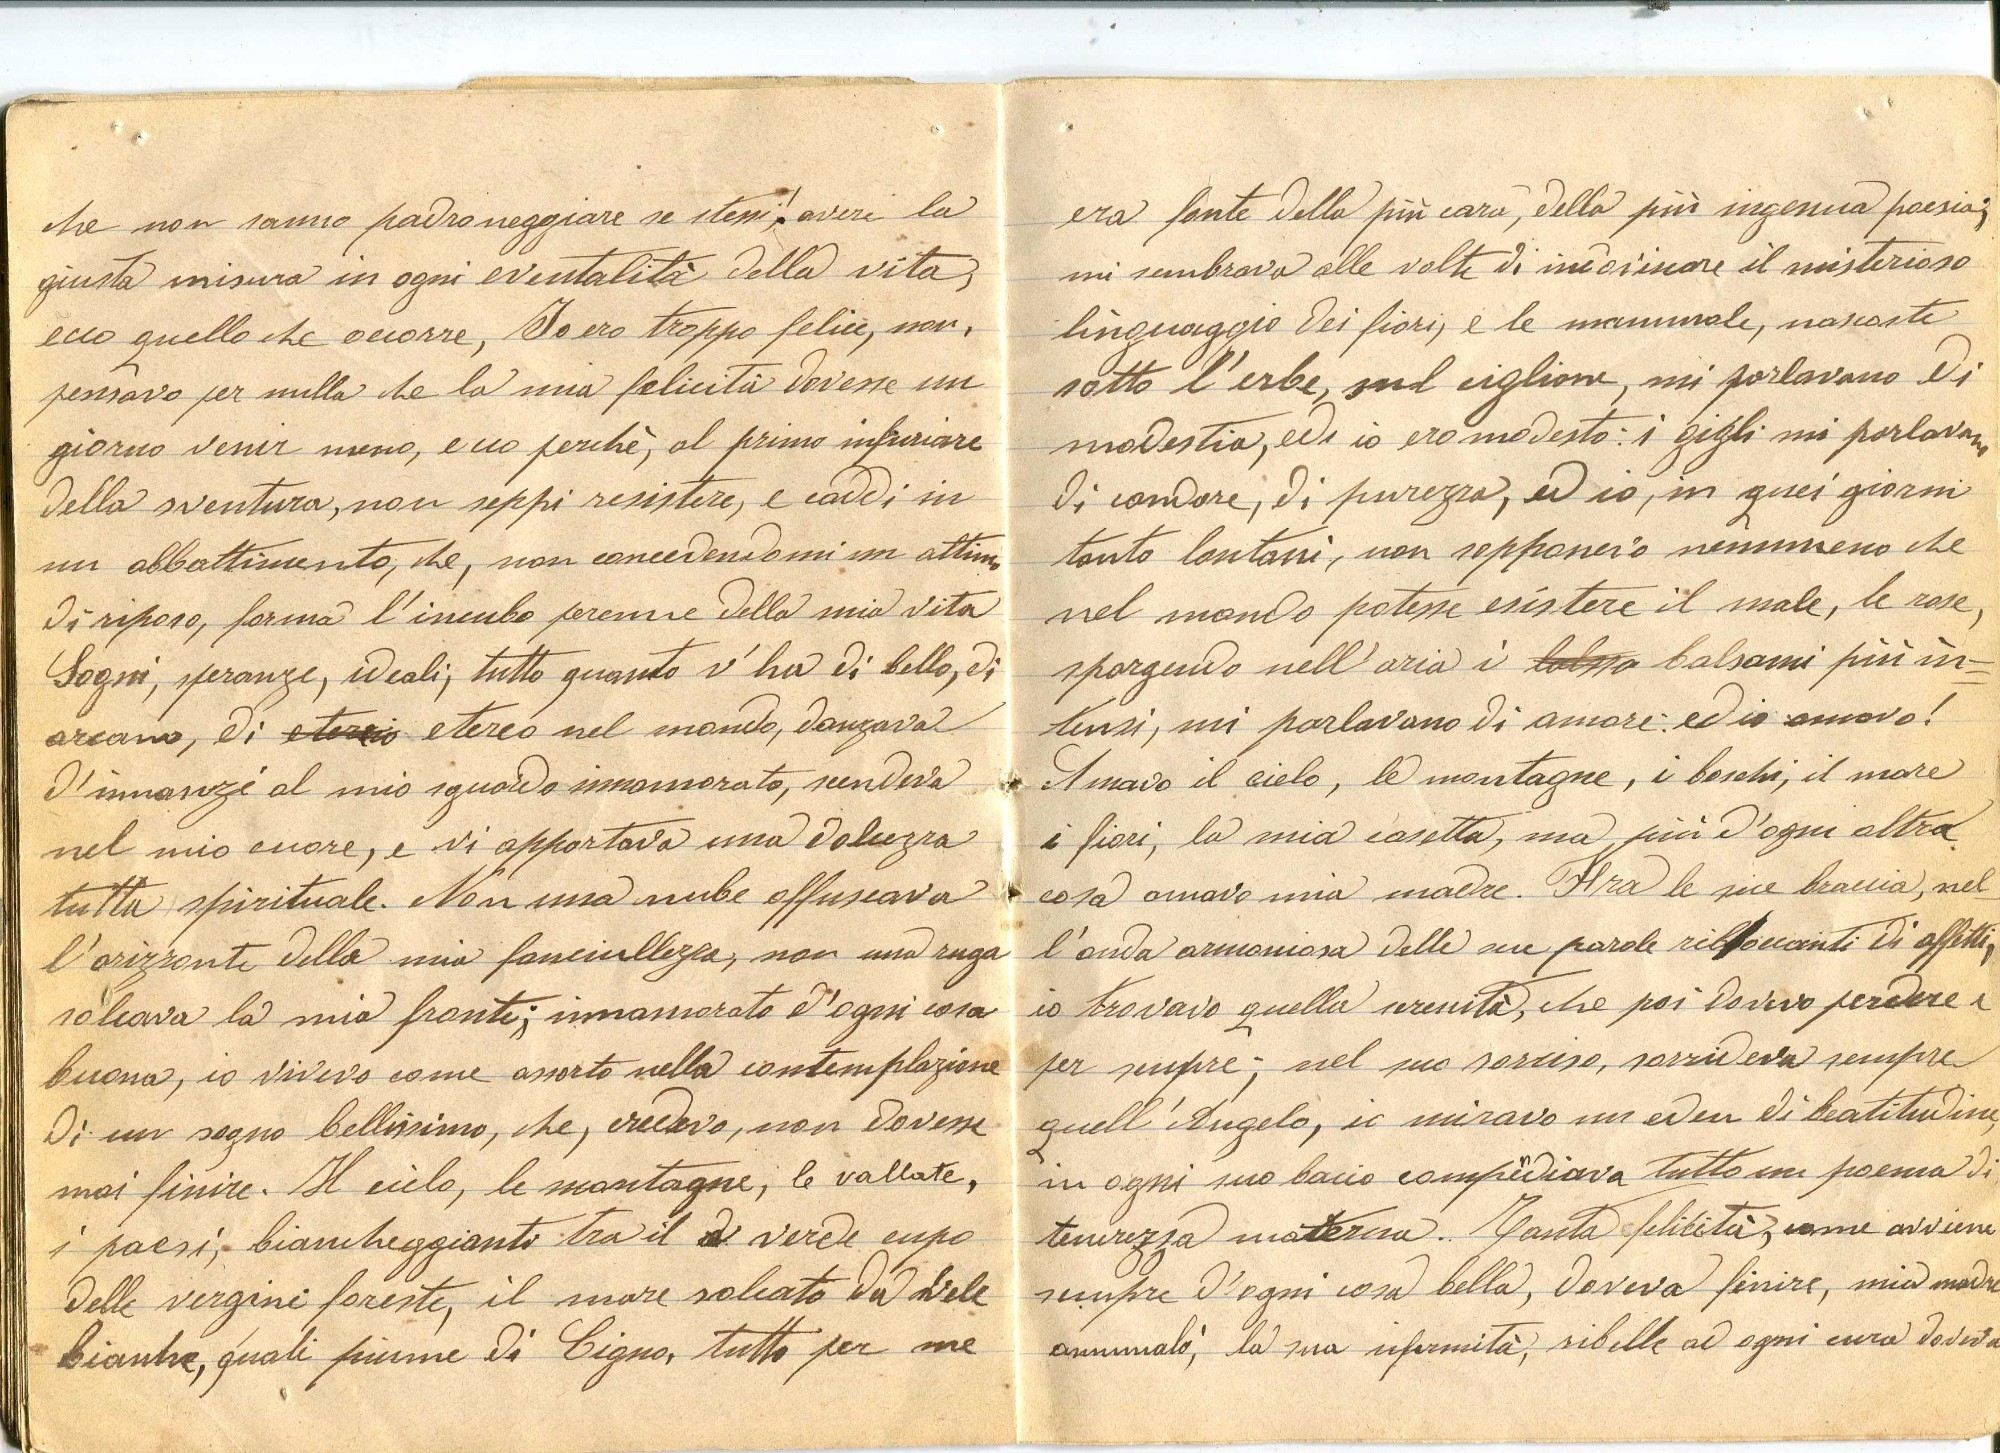 che non sanno padroneggiare se stessi! averi la
giusta misura in ogni eventalità della vita,
ecco quello che occorre, Io ero troppo felice, non,
pensavo per nulla che la mia felicità dovesse un
giorno venir meno, ecco perchè, al primo infuriare
della sventura, non seppi resistere, e caddi in
un abbattimento, che, non concedendomi un attimo
di riposo, forma l'incubo perenne della mia vita
Sogni, speranze, ideali, tutto quanto v'ha di bello, di
arcano, di etereio etereo nel mondo, danzava
d'innanzi al mio sguardo innamorato, scendeva
nel mio cuore, e vi apportava una dolcezza
tutta spirituale. Non una nube offuscava
l'orizzonte della mia fanciullezza, non una ruga
solcava la mia fronte; innamorato d'ogni cosa
buona, io vivevo come assorto nella contemplazione
di un sogno bellissimo, che, credevo, non dovesse
mai finire. Il cielo, le montagne, le vallate,
i paesi, biancheggianti tra il verde cupo
delle vergini foreste, il mare solcato da vele
bianche, quali piume di Cigno, tutto per me
era fonte della più cara, della più ingenua poesia;
mi sembrava alle volte di indovinare il misterioso
linguaggio dei fiori, e le mammole, nascoste
sotto l'erbe, sul ciglione, mi parlavano di
modestia, ed io ero modesto: i gigli mi parlavano
di candore, di purezza, ed io, in quei giorni
tanto lontani, non sapponevo nemmeno che
nel mondo potesse esistere il male, le rose,
spargendo nell'aria i balsami più in=
tensi, mi parlavano di amore: ed io amavo!
Amavo il cielo, le montagne, i boschi, il mare
i fiori, la mia casetta, ma più d'ogni altra
cosa amavo mia madre. Fra le sue braccia, nel-
l'onda armoniosa delle sue parole riboccanti di affetti,
io trovavo quella serenità, che poi dovevo perdere
per sempre; nel suo sorriso, sorrideva sempre
quell'Angelo, io miravo un eden di beatitudine,
in ogni suo bacio compendiava tutto un poema di
tenerezza materna. Tanta felicità, come avviene
sempre d'ogni cosa bella, doveva finire, mia madre
ammalò, la sua infermità, ribelle ad ogni cura doveva